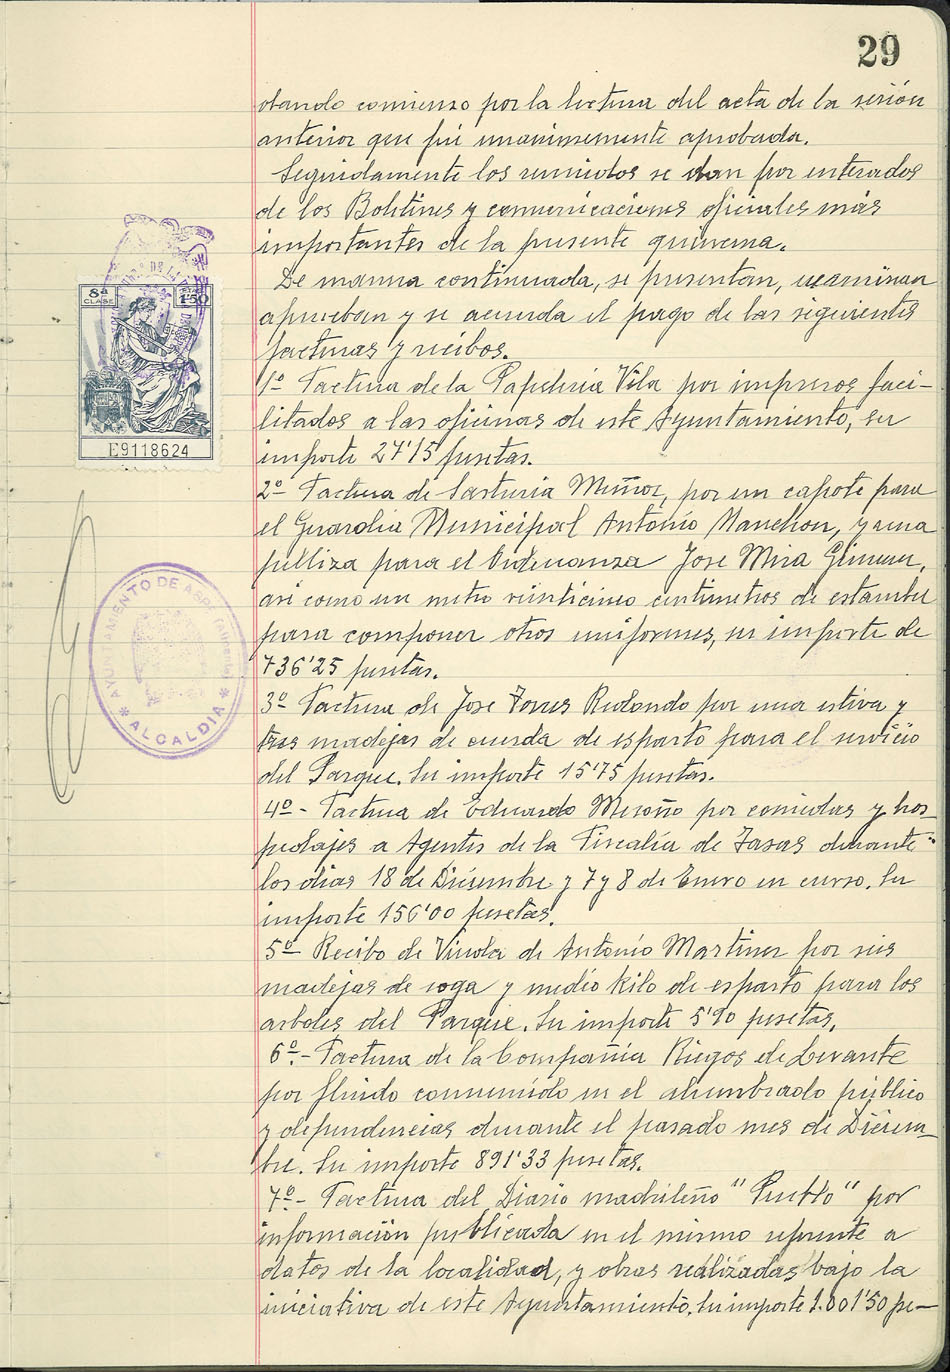 29
dando comienzo por la lectura del acta de la sesión
anterior que fué unanimemente aprobada.
Seguidamente los reunidos se dan por enterados
de los Boletines y comunicaciones oficiales más
importantes de la presente quincena.
De manera continuada, se presentan, examinan
aprueban y se acuerda el pago de las siguientes
facturas y recibos.
1º Factura de la Papeleria Vila por impresos faci-
litados a las oficinas de este Ayuntamiento, su
importe 27'15 pesetas.
2º- Factura de Sastreria Muñoz, por un capote para
el Guardia Municipal Antonio Manchon, y una
pelliza para el Ordenanza Jose Mira Gimenez,
asi como un metro veinticinco centimetros de estambre
para componer otros uniformes, su importe de
736'25 pesetas.
3º Factura de Jose Torres Redondo por una estiva y
tres madejas de cuerda de esparto para el servicio
del Parque. Su importe 15'75 pesetas.
4º- Factura de Eduardo Meroño por comidas y hos-
pedajes a Agentes de la Fiscalía de Tasas durante
los dias 18 de Diciembre y 7 y 8 de Enero en curso. Su
importe 156'00 pesetas.
5º- Recibo de Viuda de Antonio Martinez por seis
madejas de soga y medio kilo de esparto para los
arboles del Parque. Su importe 5'90 pesetas.
6º.- Factura de la Compañia Riegos de Levante
por fluido consumido en el alumbrado publico
y dependencias durante el pasado mes de Diciem-
bre. Su importe 891'33 pesetas.
7º- Factura del Diario madrileño "Pueblo" por
información publicada en el mismo referente a
datos de la localidad, y obras realizadas bajo la
iniciativa de este Ayuntamiento. Su importe 1.001'50 pe-
8ª CLASE
1'50
E9118624
AYUNTAMIENTO DE ASPE
* ALCALDIA *